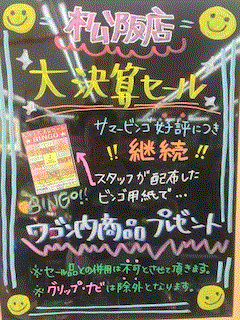 松阪店
大決算セール
サマービンゴ好評につき
!! 継続 !!
スタッフが配布した
ビンゴ用紙で…
BINGO!!
ワゴン内商品プレゼント
※セール品との併用は不可とさせて頂きます。
※グリップ・ナビは除外となります。